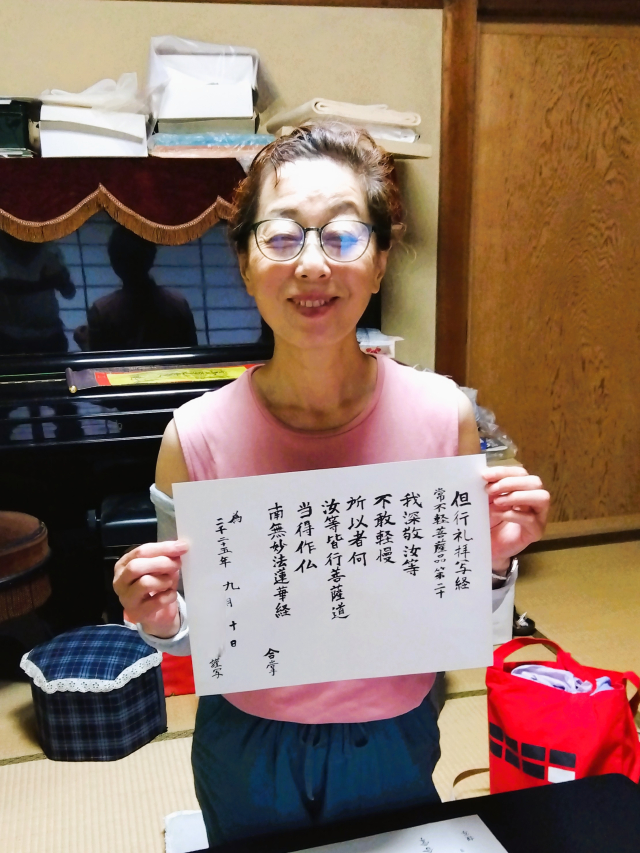 但行礼拝写経
常不軽菩薩品第二十
我深敬汝等
不敢軽慢
所以者何
汝等皆行菩薩道
当得作仏
南無妙法蓮華経
合掌
為
二千二十五年 九月 十日
謹写